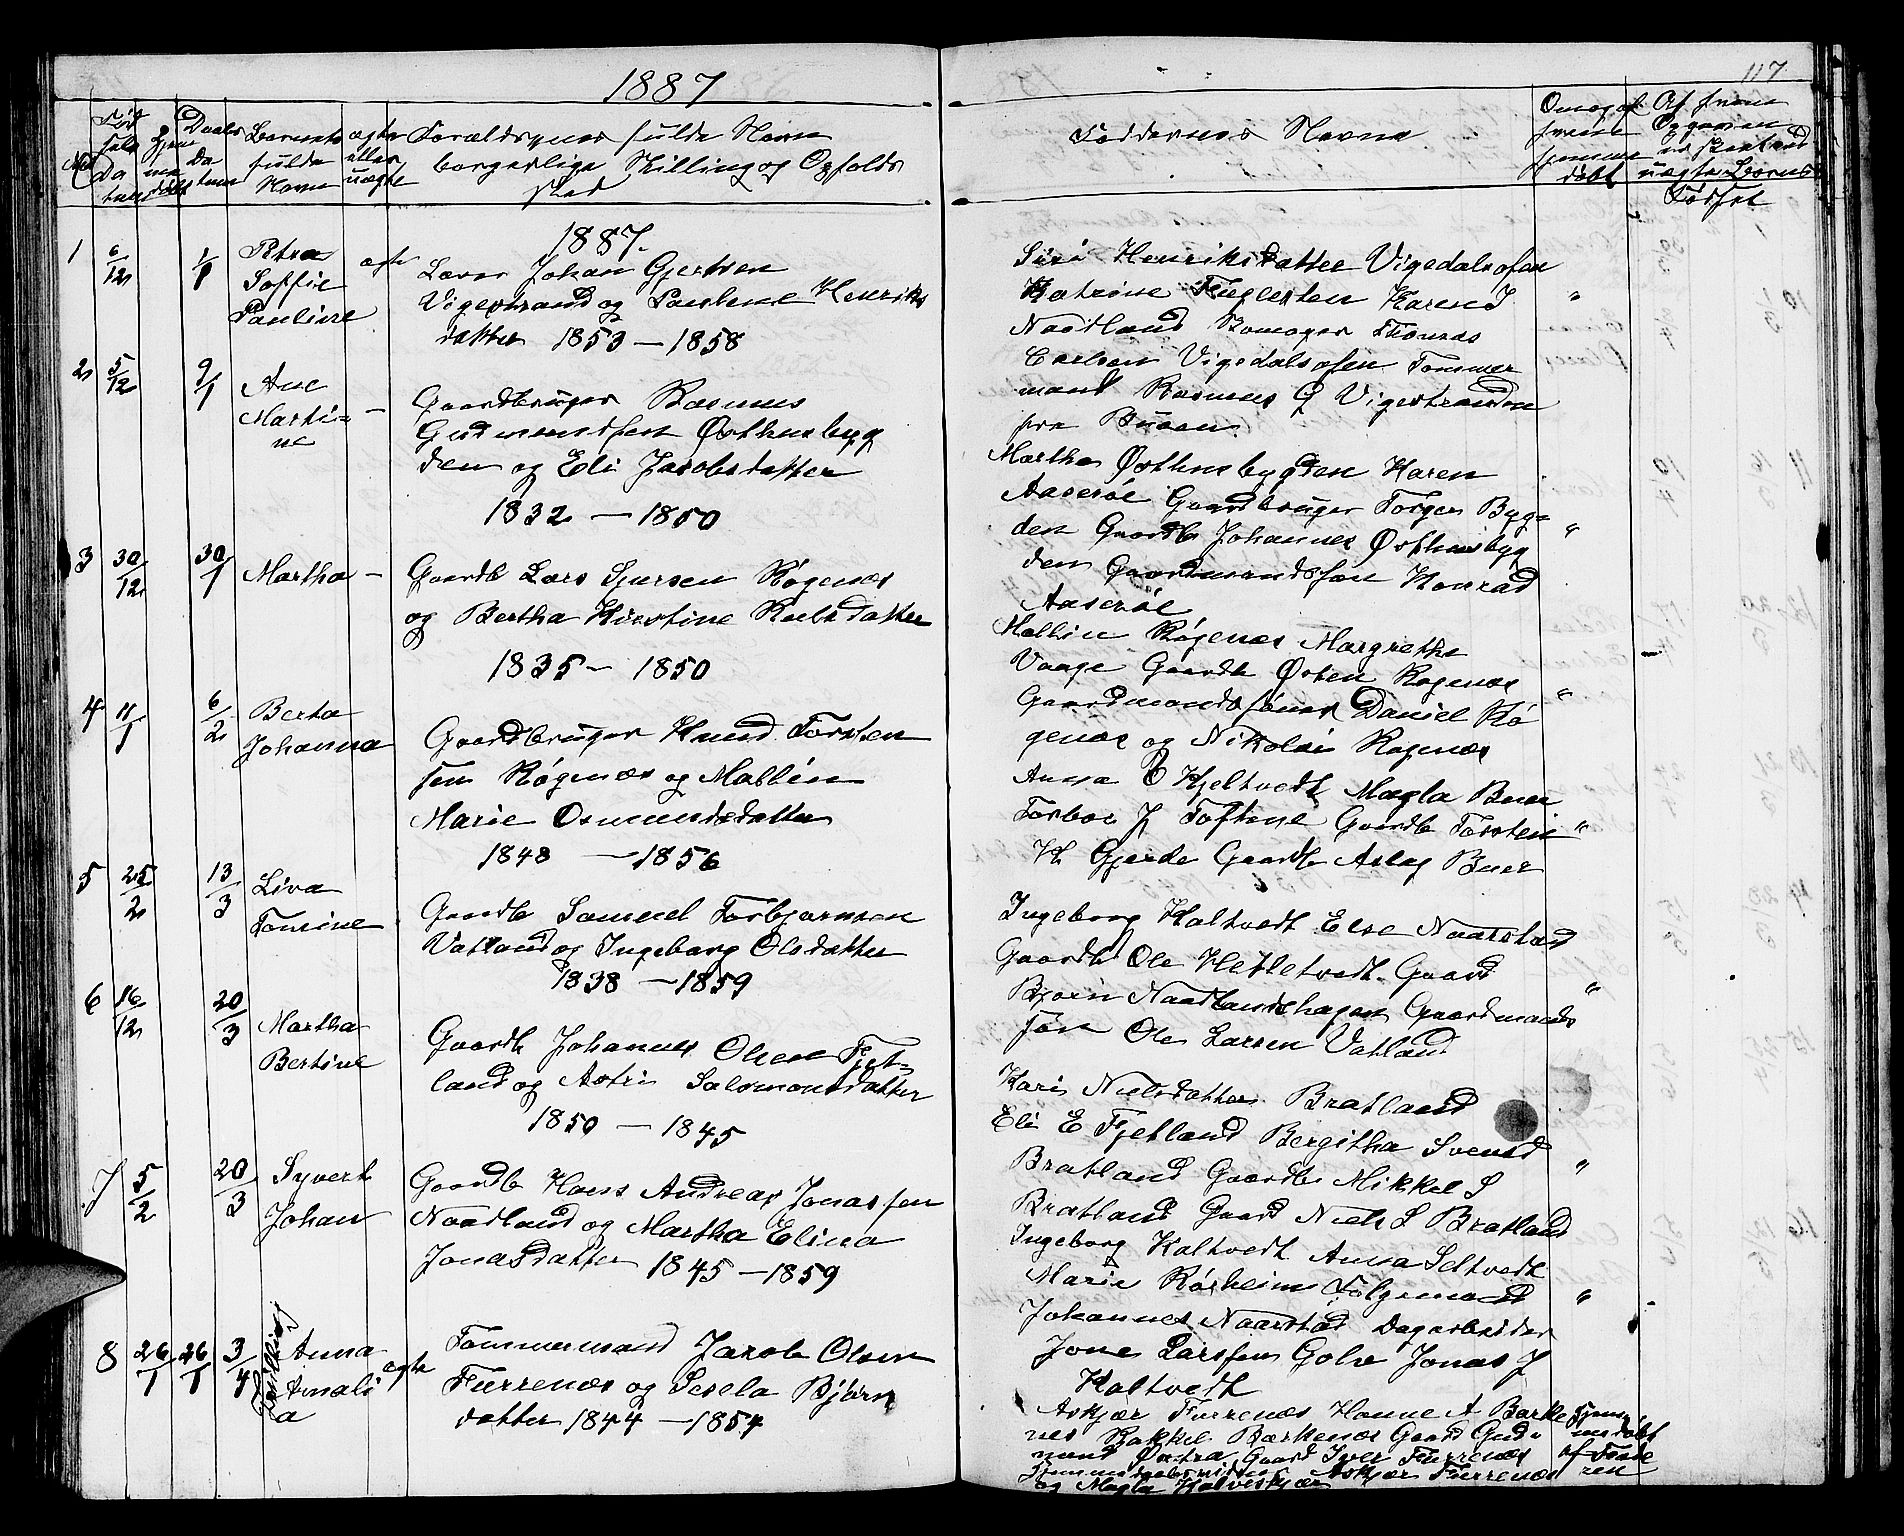 1887
117
No
Fød
sels
Da
tum
Daabs
Da
tum
Barnets
fulde
Navn
ægte
eller
uægte
Forældrenes fulde Navn
borgerlige Stilling og Opholds
sted
Faddernes Navne
Om og af
hvem
hjemme
døbt
1887.
1 6/12 1/1 Petra
Soffie
Pauline
ægte
Laver Johan Gjertsen
Vigestrand og Pauline Henriks
datter 1853 — 1858
Siri Henriksdatter Vigedalsosen
Katrine Fuglesten Karen J
Naadland Skomager Thomas
Carlsen Vigedalsosen Tømmer
mand Rasmus G Vigestranden
fra Buøen
"
2 5/12 9/1 Ane
Marti=
ne
—
Gaardbruger Rasmus
Gudmundsen Østhusbyg
den og Eli Jacobsdatter
1832 — 1850
Martha Østhusbygden Karen
Aaserøe Gaardbruger Torger Byg=
den Gaardb Johannes Østhusbyg
den Gaardmandssøn Konrad
Aaserøe
"
3 30/12 30/1 Martha —
Gaardb Lars Sjursen Røgenæs
og Bertha Kirstine Nielsdatter
1835 — 1850
Mallin Røgenæs Margrethe
Vaage Gaardb Østen Røgenæs
Gaardmandssøner Daniel Rø
genæs og Nikolai Røgenæs
"
4 11/1 6/2 Berta
Johanna
Gaardbruger Knud Torsten
sen Røgenæs og Mallin
Marie Osmundsdatter
1848 — 1856
Anna E Kjeltvedt Magla Buer
Torbor J Toftene Gaardb Torstein
K Gjerde Gaardb Aslag Buer
"
5 25/2 13/3 Liva
Tomine
Gaardb Samuel Torbjørnsen
Vatland og Ingeborg Olsdatter
1838 — 1859
Ingeborg Kaltvedt Else Naarstad
Gaardb Ole Hetletvedt Gaard
Bjørn Naadlandshagen Gaardmands
søn Ole Larsen Vatland
"
6 16/12 20/3 Martha
Bertine
Gaardb Johannes Olsen Fjet=
land og Astri Salomonsdatter
1850 — 1845
Kari Nielsdatter Bratland
Eli E Fjetland Bergitha Svensd
Bratland Gaardb Mikkel S
Bratland Gaard Niels S Bratland
"
7 5/2 20/3 Syvert
Johan
Gaardb Hans Andreas Jonassen
Naadland og Martha Elina
Jonasdatter 1845 — 1859
Ingeborg Kaltvedt Anna Seltvedt
Marie Rørheim Følgemand
Johannes Naarstad Dagarbeider
Jone Larssen Golve Jonas J
Kaltvedt
"
8 26/1 26/1 3/4 Anna
Amali
a
ægte
Tømmermand Jacob Olsen
Furrenæs og Sesela Bjørn
datter 1844 — 1854
Askjær Furrenæs Hanne A Børke
næs Rakkel Børkenæs Gaard Gud=
mund Østraa Gaard Iver Furrenæs
Askjær Furrenæs
og Magla
Hjem=
medøbt
af Fade
ren